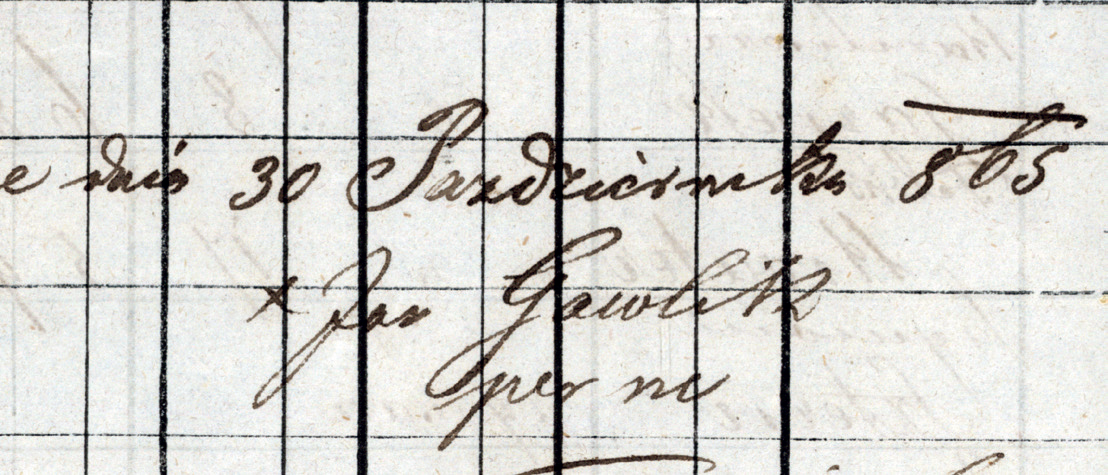 e dnia 30 Pazdziernika 865
x Jan Gawlik
per me